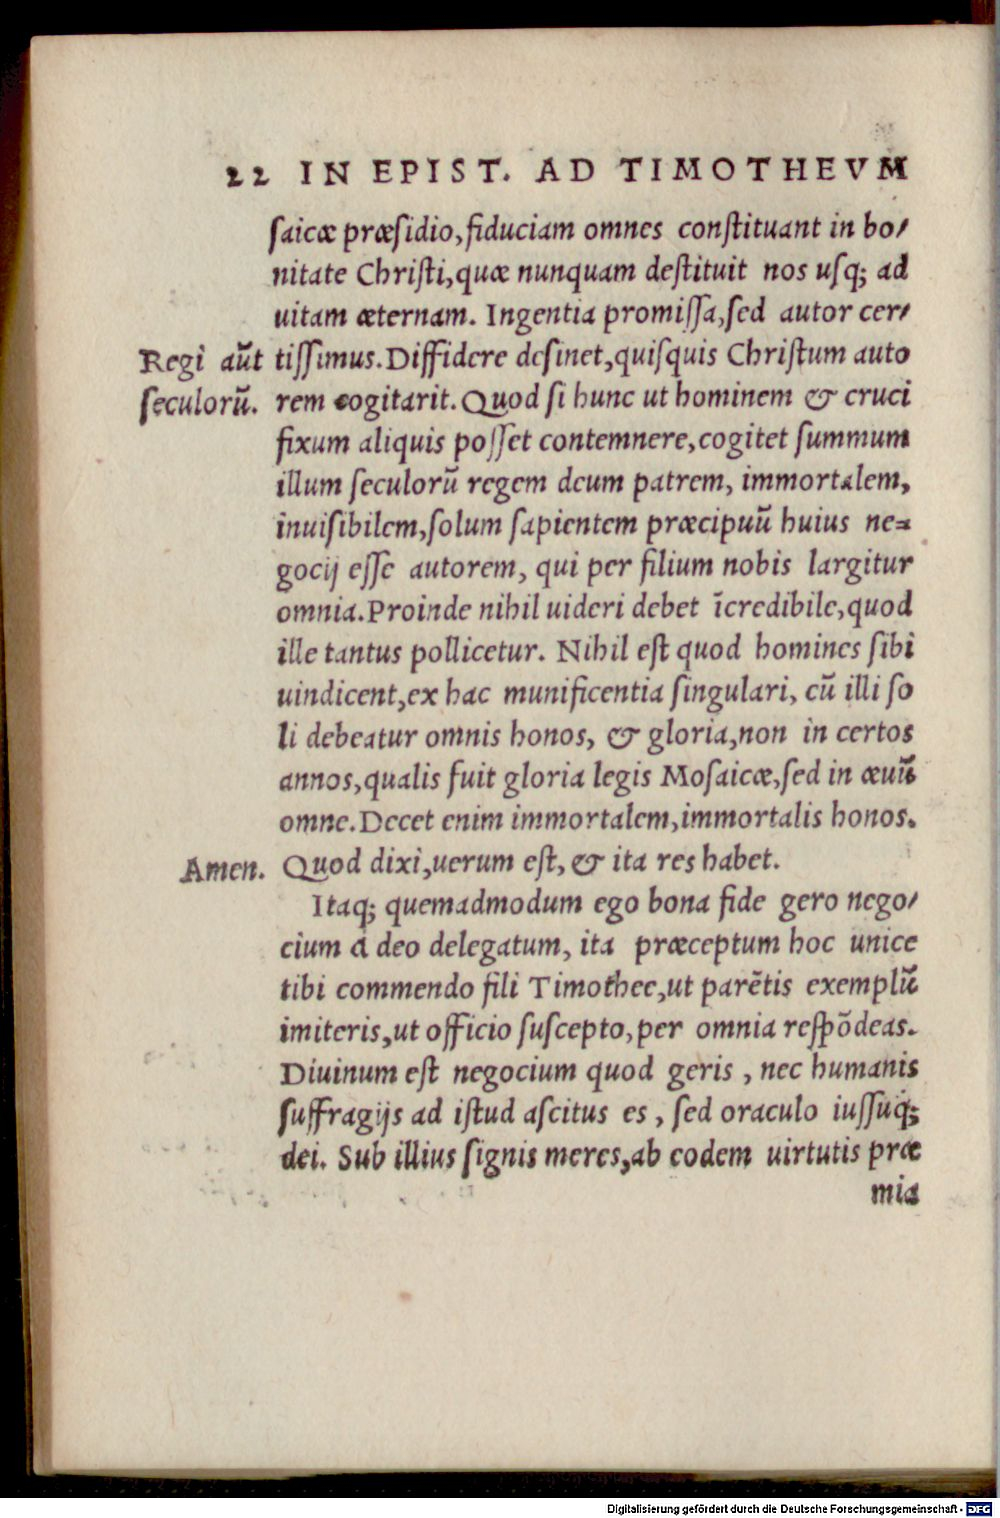 22 IN EPIST. AD TIMOTHEVM
saicæ præsidio, fiduciam omnes constituant in bo/
nitate Christi, quæ nunquam destituit nos usq; ad
uitam æternam. Ingentia promissa, sed autor cer/
Regi aūt tissimus. Diffidere desinet, quisquis Christum auto
seculorū. rem cogitarit. Quod si hunc ut hominem & cruci
fixum aliquis posset contemnere, cogitet summum
illum seculorū regem deum patrem, immortalem,
inuisibilem, solum sapientem præcipuū huius ne=
gocij esse autorem, qui per filium nobis largitur
omnia. Proinde nihil uideri debet īcredibile, quod
ille tantus pollicetur. Nihil est quod homines sibi
uindicent, ex hac munificentia singulari, cū illi so
li debeatur omnis honos, & gloria, non in certos
annos, qualis fuit gloria legis Mosaicæ, sed in æuū
omne. Decet enim immortalem, immortalis honos.
Amen. Quod dixi, uerum est, & ita res habet.
Itaq; quemadmodum ego bona fide gero nego/
cium à deo delegatum, ita præceptum hoc unice
tibi commendo fili Timothee, ut parētis exemplū
imiteris, ut officio suscepto, per omnia respōdeas.
Diuinum est negocium quod geris, nec humanis
suffragijs ad istud ascitus es, sed oraculo iussuq;
dei. Sub illius signis meres, ab eodem uirtutis præ
mia
Digitalisierung gefördert durch die Deutsche Forschungsgemeinschaft - DFG